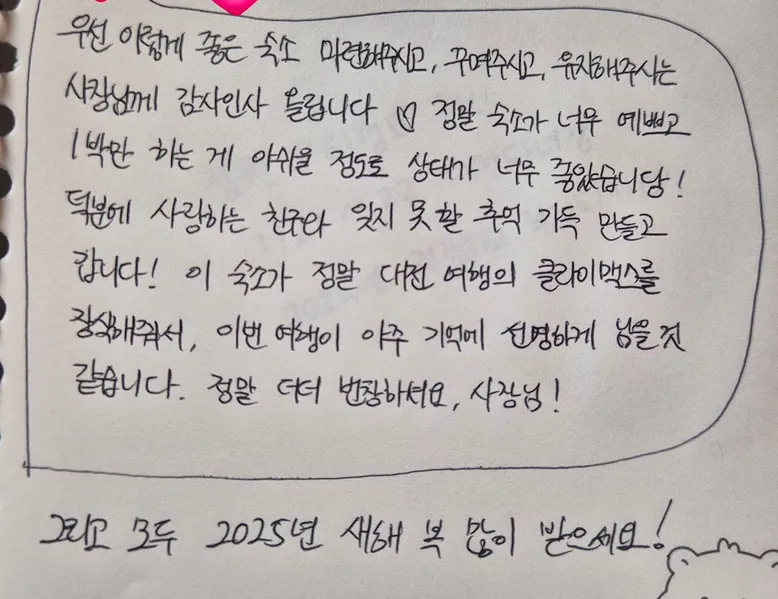 우선 이렇게 좋은 숙소 마련해주시고, 꾸며주시고, 유지해주시는
사장님께 감사인사 올립니다 ♡ 정말 숙소가 너무 예쁘고
1박만 하는 게 아쉬울 정도로 상태가 너무 좋았습니당!
덕분에 사랑하는 친구와 잊지 못할 추억 가득 만들고
갑니다! 이 숙소가 정말 대전 여행의 클라이맥스를
장식해줘서, 이번 여행이 아주 기억에 선명하게 남을 것
같습니다. 정말 더더 번창하셔요, 사장님!
그리고 모두 2025년 새해 복 많이 받으세요!